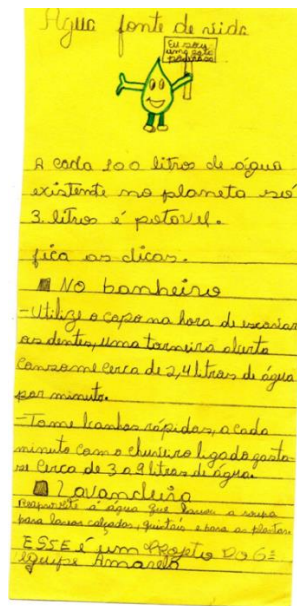 Água fonte de vida
Eu sou
uma gota
poderosa
A cada 100 litros de água
existente no planeta só
3. litros é potavel.
fica as dicas.
No banheiro
-Utilize o copo na hora de escovar
os dentes, uma torneira aberta
consome cerca de 2,4 litros de água
por minuto.
-Tome banhos rápidos, a cada
minuto com o chuveiro ligado gasta-
se cerca de 3 a 9 litros de água.
Lavanderia
Reaproveite a água que lavou a roupa
para lavar calçados, quintais e para as plantas.
ESSE é um PROJETO DO 6º
equipe Amarela